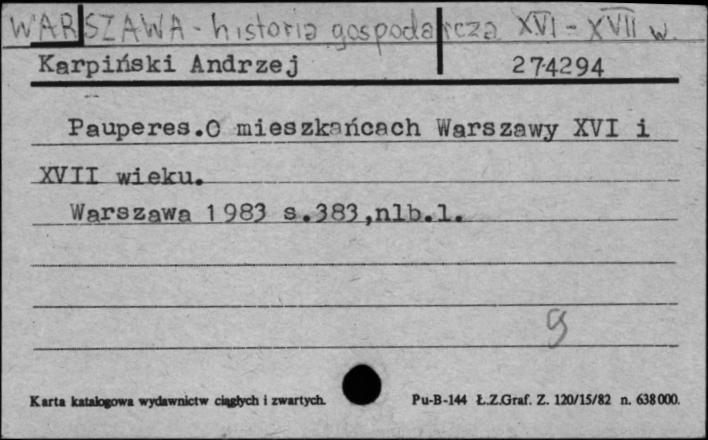 WARSZAWA - historia gospodarcza XVI - XVII w.
Karpiński Andrzej 274294
Pauperes.O mieszkańcach Warszawy XVI i
XVII wieku.
Warszawa 1983 s.383,nlb.1.
g
Karta katalogowa wydawnictw ciągłych i zwartych. Pu-B-144 Ł.Z.Graf. Z. 120/15/82 n. 638000.